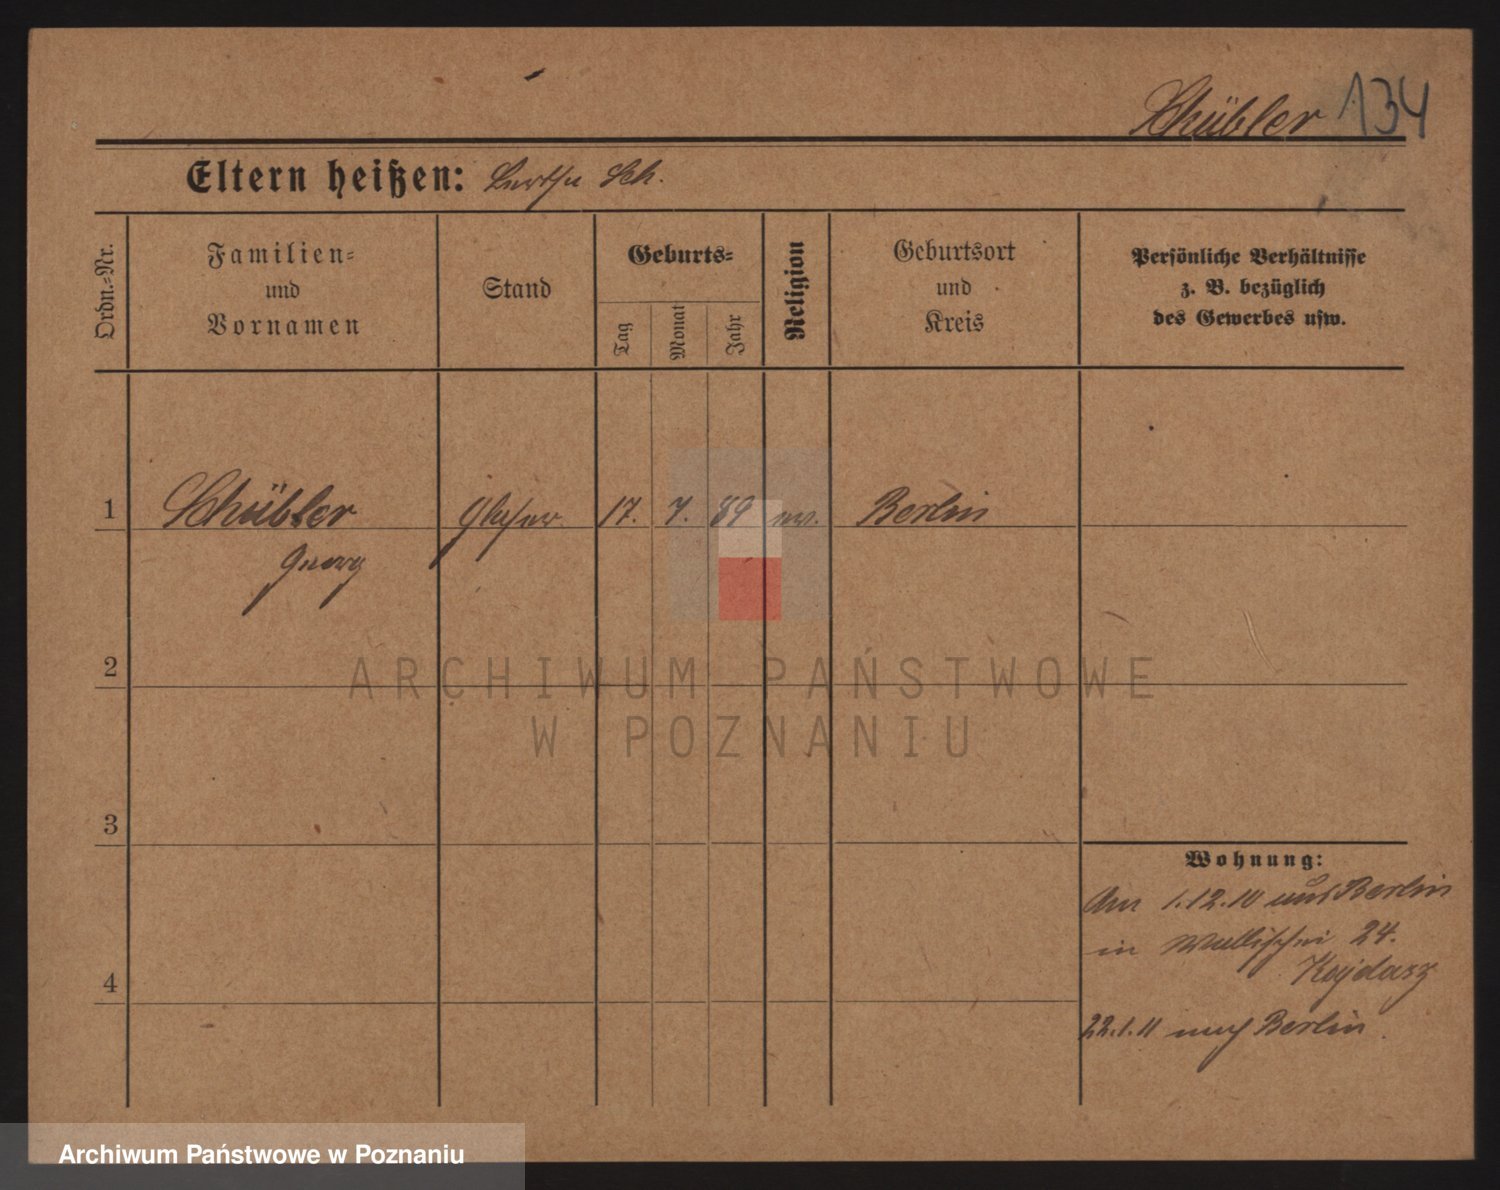 Schübler 134
Eltern heißen: Bertha Sch.
Ordn.-Nr.
Familien-
und
Vornamen
Stand
Geburts-
Tag
Monat
Jahr
Religion
Geburtsort
und
Kreis
Persönliche Verhältnisse
z. B. bezüglich
des Gewerbes usw.
1 Schübler Glaser 17. 7. 89 ev. Berlin
Georg
2
ARCHIWUM PAŃSTWOWE
W POZNANIU
3
Wohnung:
Am 1.12.10 aus Berlin
in Wallischei 24.
Kajdasz
4
22.1.11 nach Berlin
Archiwum Państwowe w Poznaniu